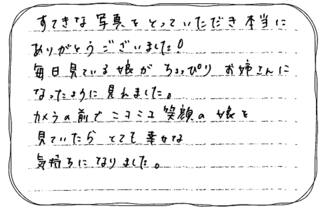 すてきな写真をとっていただき本当に
ありがとうございました!
毎日見ている娘がちょっぴりお姉さんに
なったように見えました。
カメラの前でニコニコ笑顔の娘を
見ていたらとても幸せな
気持ちになりました。